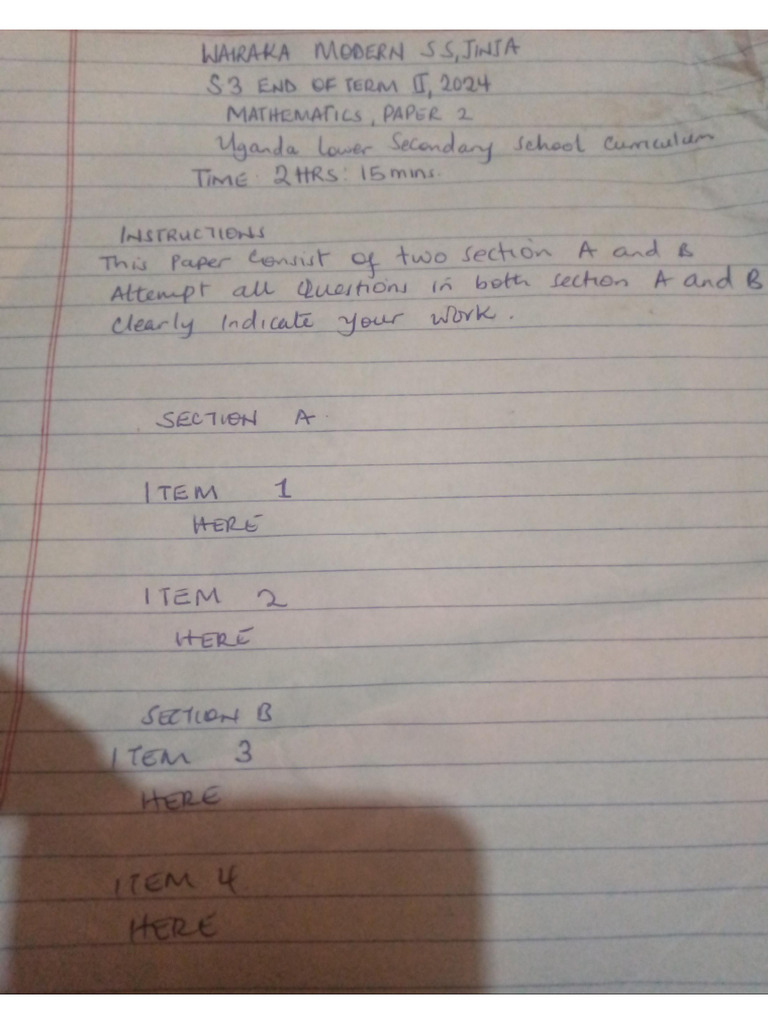 WAIRAKA MODERN SS, JINJA
S3 END OF TERM II, 2024
MATHEMATICS, PAPER 2
Uganda Lower Secondary School Curriculum
TIME: 2 HRS: 15 mins.
INSTRUCTIONS
This Paper Consist of two section A and B
Attempt all Questions in both section A and B
Clearly Indicate your work.
SECTION A.
ITEM 1
HERE
ITEM 2
HERE
SECTION B
ITEM 3
HERE
ITEM 4
HERE